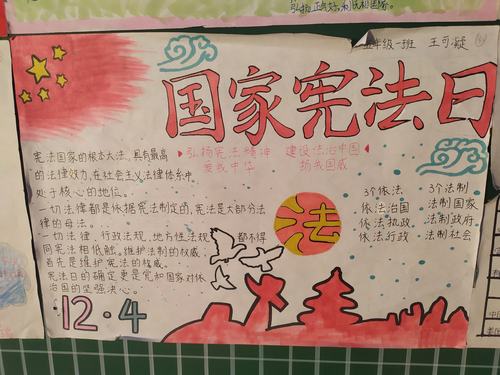 弘扬正气,利民和国家。
五年级一班 王可凝
国家宪法日
宪法国家的根本大法,具有最高
的法律效力,在社会主义法律体系中
处于核心的地位。
一切法律都是依据宪法制定的,宪法是大部分法
律的母法。
一切法律,行政法规,地方性法规 都不得
同宪法相低触。维护法制的权威;
首先是维护宪法的权威。
宪法日的确定更是党和国家对依
治国的坚强决心。
弘扬宪法精神 建设法治中国
爱我中华 扬我国威
法
3个依法 3个法制
依法治国 法制国家
依法执政 法制政府
依法行政 法制社会
12·4